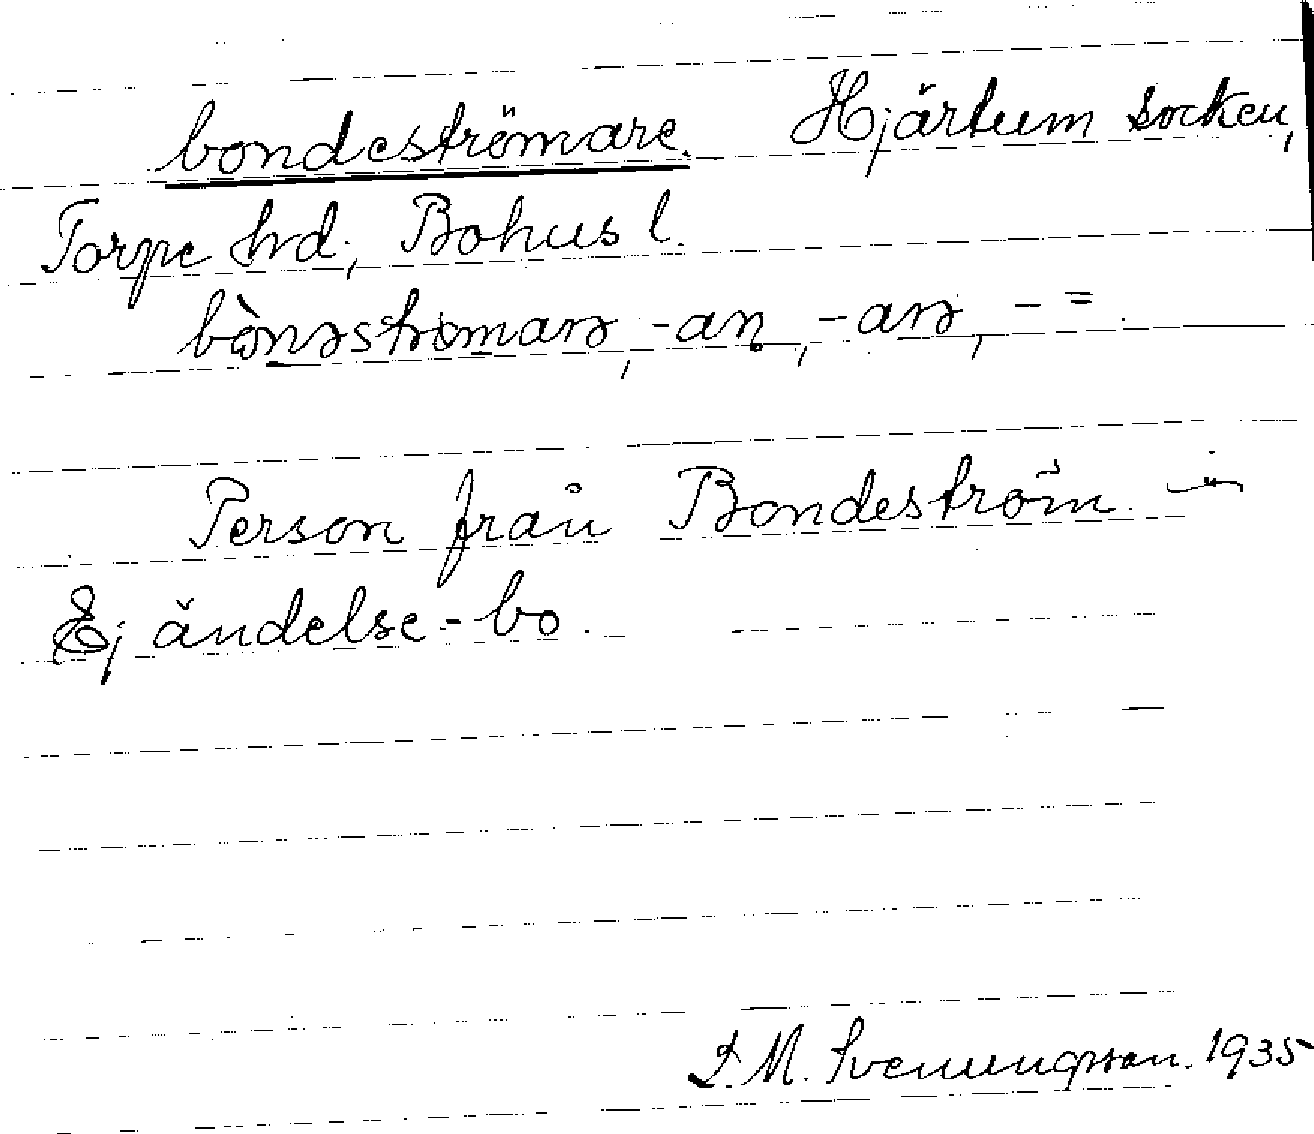 bondeströmare. Hjärtum socken,
Torpe hrd, Bohus l.
bònəströmarə, -an, -arə, - =
Person från Bondeström.
Ej ändelse -bo.
M. Svenungsson. 1935